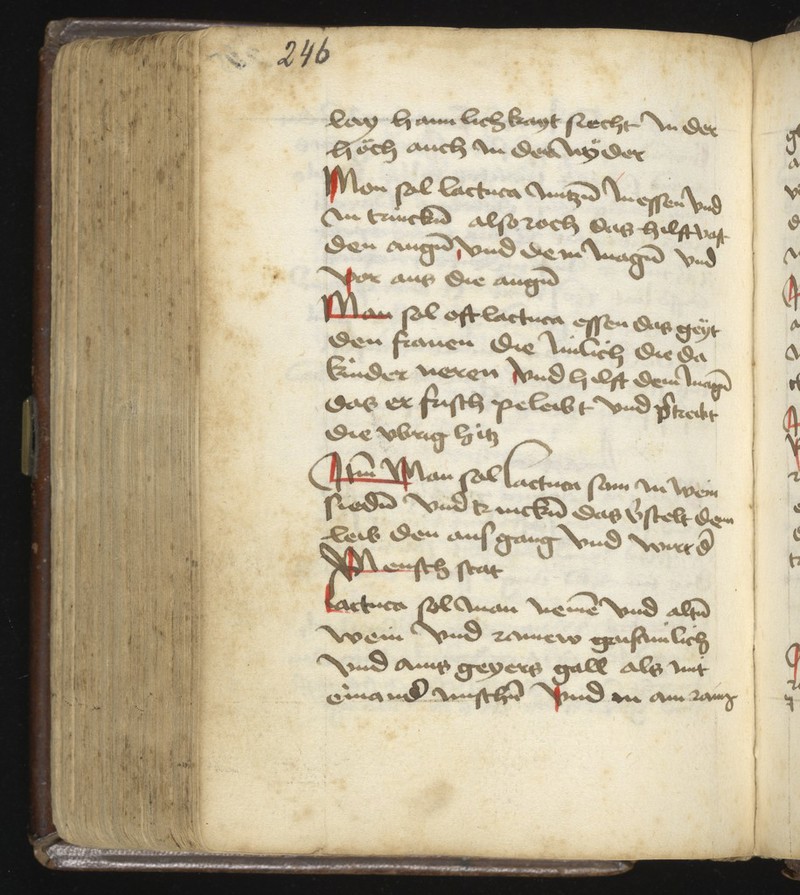 246
lay haimlichkayt siecht in der
höch auch in der nyder
Man sol lactuca nutzn̄ in essen vnd
in trinckn̄ also roch das hilft vast
den augn̄ vnd dem magn̄ vnd
vor aus die augn̄
Man sol oft lactuca essen das geÿt
den frauen die milich die da
kinder neren vnd hilft dem magn̄
das er frisch peleibt vnd v̉treibt
die vbrig hitz
Itm̄ Man sol lactuca sam in wein
siedn̄ vnd trinckn̄ das v̉stelt dem
leib den ausgang vnd wirt d̉
Mensch stat
Lactuca sol man nemē vnd altn̄
wein vnd rainew gaismilich
vnd ains geyers gall als mit
einand̉ mischn̄ vnd in ain rainz